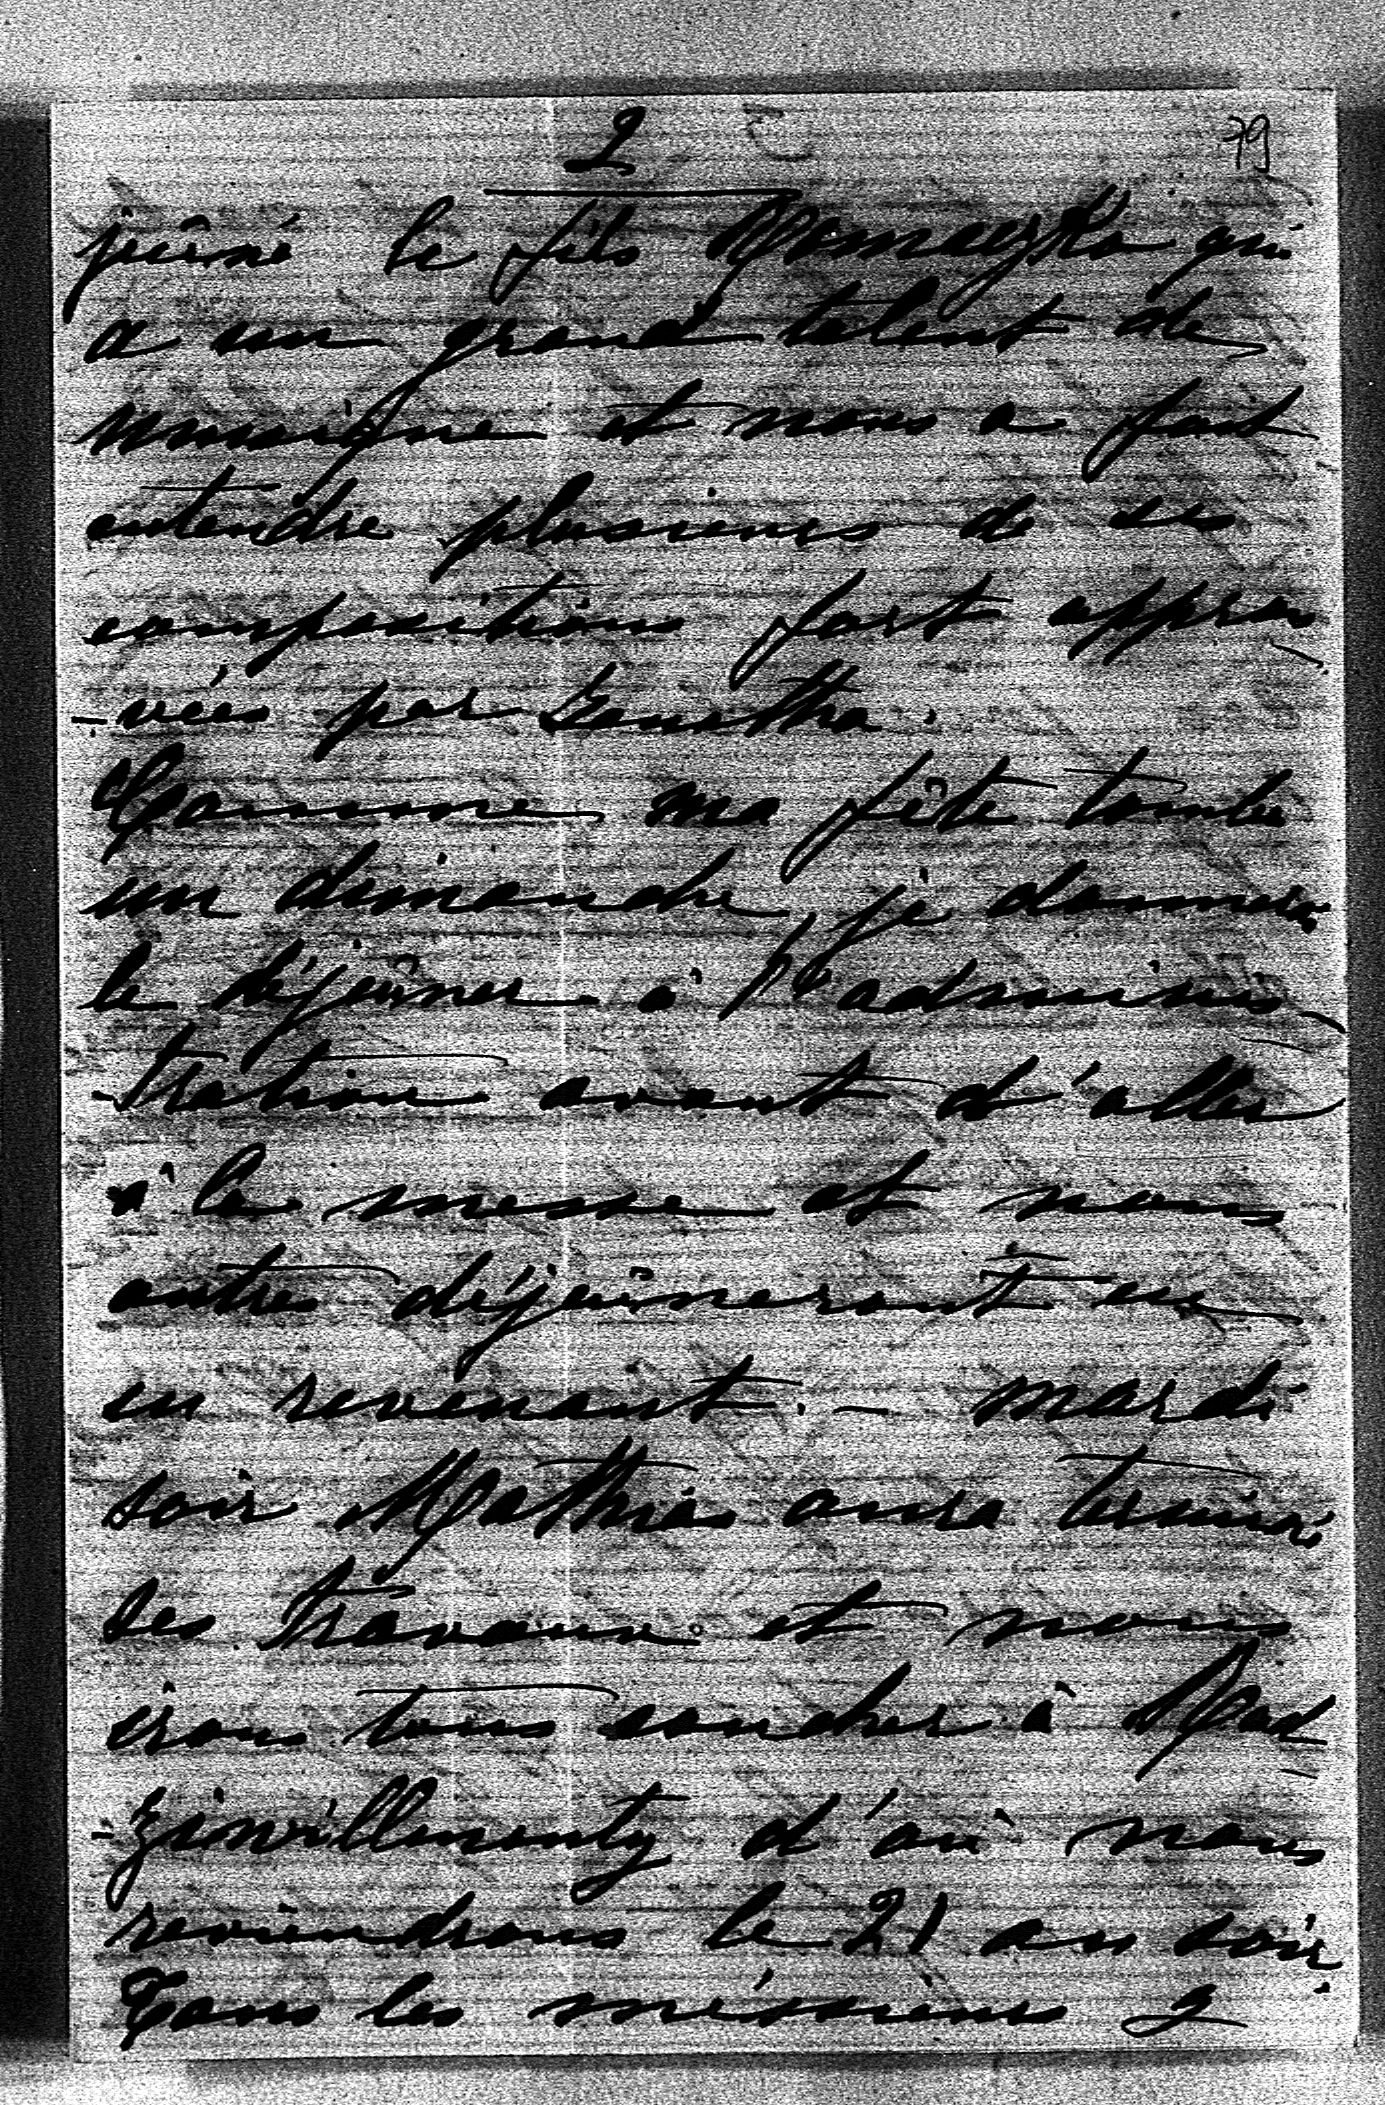 2
79
jeûné le fils Romaszko qui
a un grand talent de
musique et nous a fait
entendre plusieurs de ses
compositions fort approu
-vées par
Comme ma fête tombe
un dimanche, je donnerai
le déjeûner à l'adminis-
-tration avant d'aller
à la messe et nous
autres déjeûneront en
en revenant. - Mardi
soir Mathias aura terminé
ses travaux et nous
irons tous coucher à Rad
-ziwillmonty d'où nous
reviendrons le 21 au soir.
Tous les méssieurs y